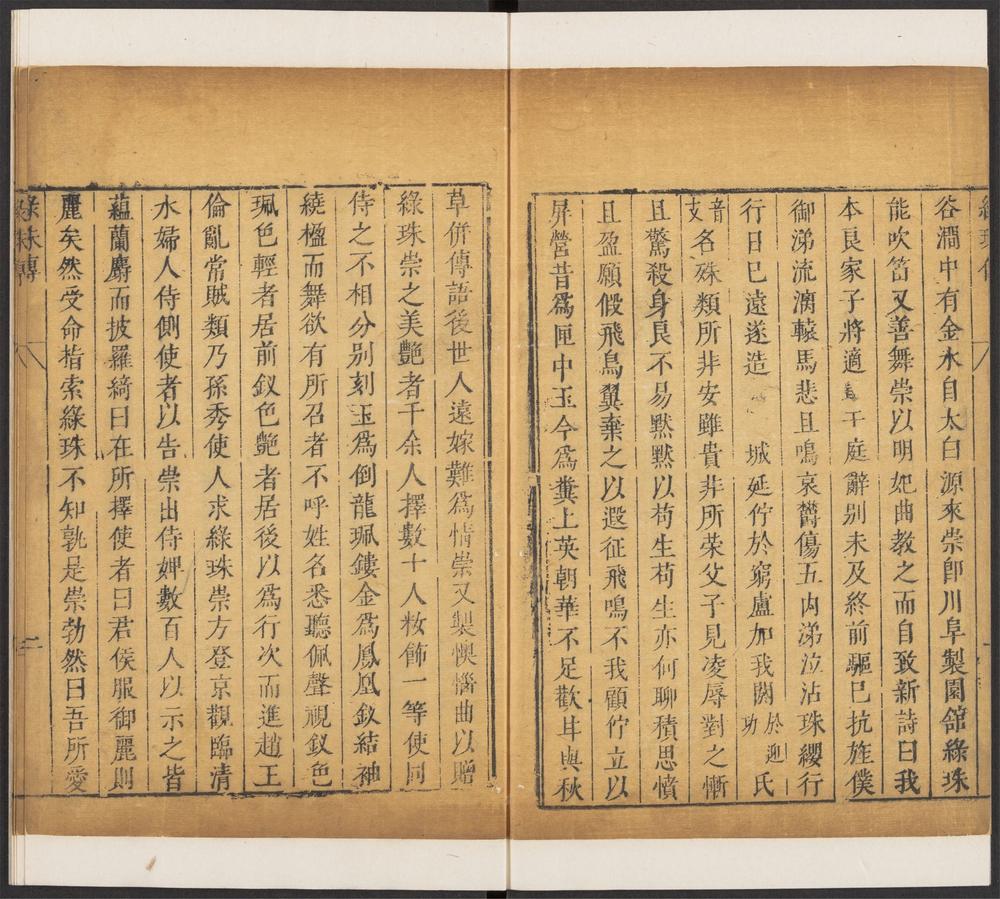 谷澗中有金水自太白源來崇卽川阜製園館綠珠
能吹笛又善舞崇以明妃曲教之而自致新詩曰我
本良家子將適于庭辭别未及終前驅已抗旌僕
御涕流漓轅馬悲且鳴哀欝傷五内涕泣沾珠纓行
行日已遠遂造城延佇於窮廬加我閼於迎氏
音支名殊類所非安雖貴非所荣父子見凌辱對之慚
且驚殺身良不易黙黙以苟生苟生亦何聊積思憤
且盈願假飛鳥翼棄之以遐征飛鳴不我顧佇立以
屏營昔爲匣中玉今爲糞上英朝華不足歡甘與秋
草併傳語後世人遠嫁難爲情崇又製懊惱曲以贈
綠珠崇之美艷者千余人擇數十人粧飾一等使同
侍之不相分别刻玉爲倒龍珮鏤金爲鳳凰釵結袖
繞楹而舞欲有所召者不呼姓名悉聽佩聲視釵色
珮色輕者居前釵色艷者居後以爲行次而進趙王
倫亂常賊類乃孫秀使人求綠珠崇方登京觀臨清
水婦人侍側使者以告崇出侍婢數百人以示之皆
蘊蘭麝而披羅綺曰在所擇使者曰君侯服御麗則
麗矣然受命指索綠珠不知孰是崇勃然曰吾所愛
綠珠傳
二